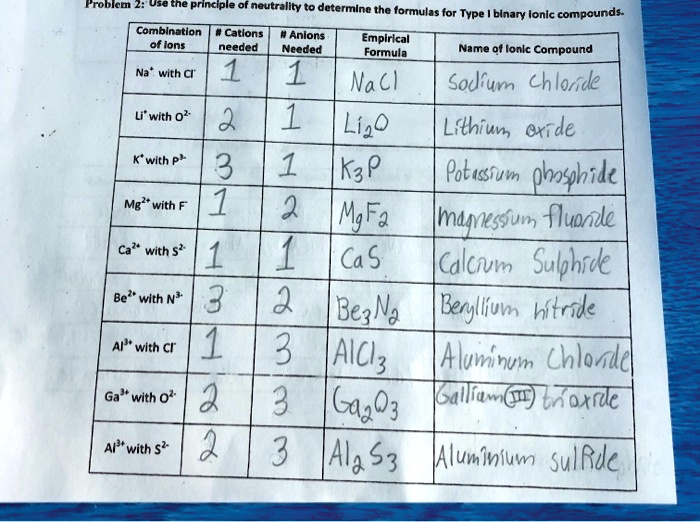 Problem 2: Use the principle of neutrality to determine the formulas for Type I binary ionic compounds.
Combination of Ions # Cations needed # Anions Needed Empirical Formula Name of Ionic Compound
Na⁺ with Cl⁻ 1 1 NaCl Sodium Chloride
Li⁺ with O²⁻ 2 1 Li₂O Lithium oxide
K⁺ with P³⁻ 3 1 K₃P Potassium phosphide
Mg²⁺ with F⁻ 1 2 MgF₂ magnessium fluoride
Ca²⁺ with S²⁻ 1 1 CaS Calcium Sulphide
Be²⁺ with N³⁻ 3 2 Be₃N₂ Beryllium nitride
Al³⁺ with Cl⁻ 1 3 AlCl₃ Aluminum Chloride
Ga³⁺ with O²⁻ 2 3 Ga₂O₃ Gallium(III) trioxide
Al³⁺ with S²⁻ 2 3 Al₂S₃ Aluminium sulfide